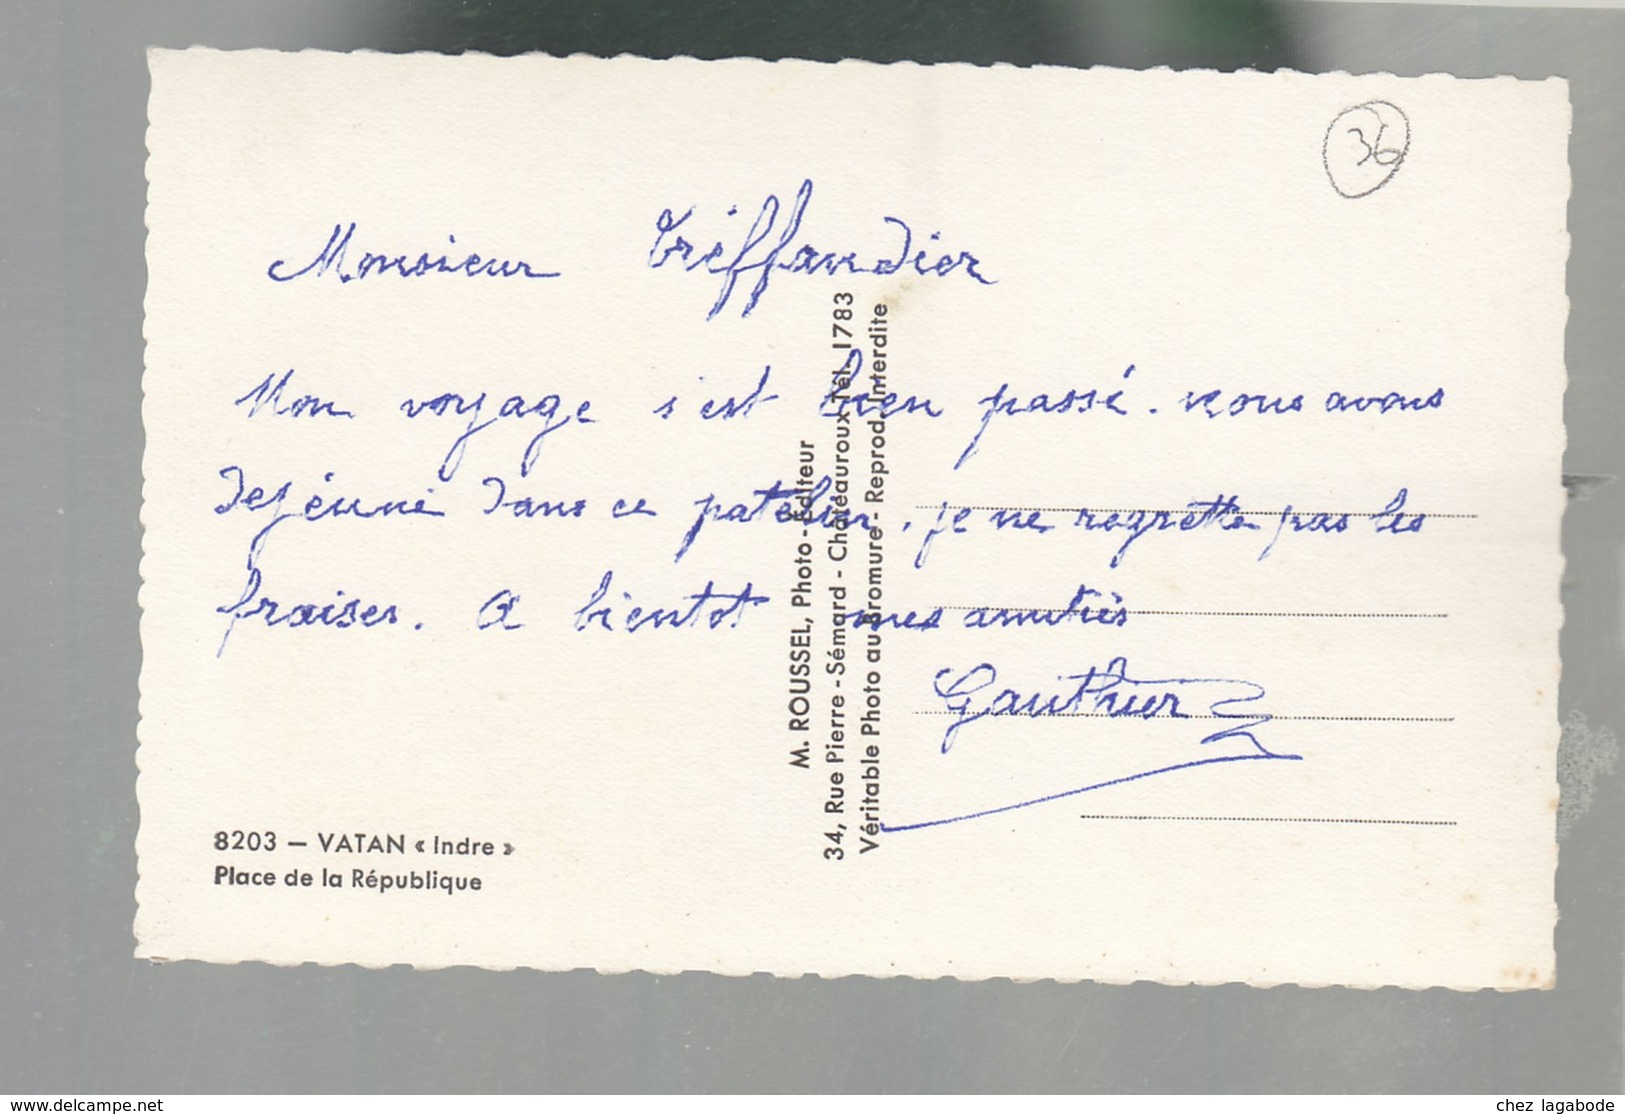 36
Monsieur Treffandier
Mon voyage s'est bien passé. nous avons
dejéuné dans ce patelin. je ne regrette pas les
fraises. A bientot mes amitiés
Gauthier
M. ROUSSEL, Photo-Éditeur
34, Rue Pierre-Sémard - Châteauroux Tél. 1783
Véritable Photo au Bromure - Reprod. Interdite
8203 — VATAN « Indre »
Place de la République
www.delcampe.net
chez lagabode